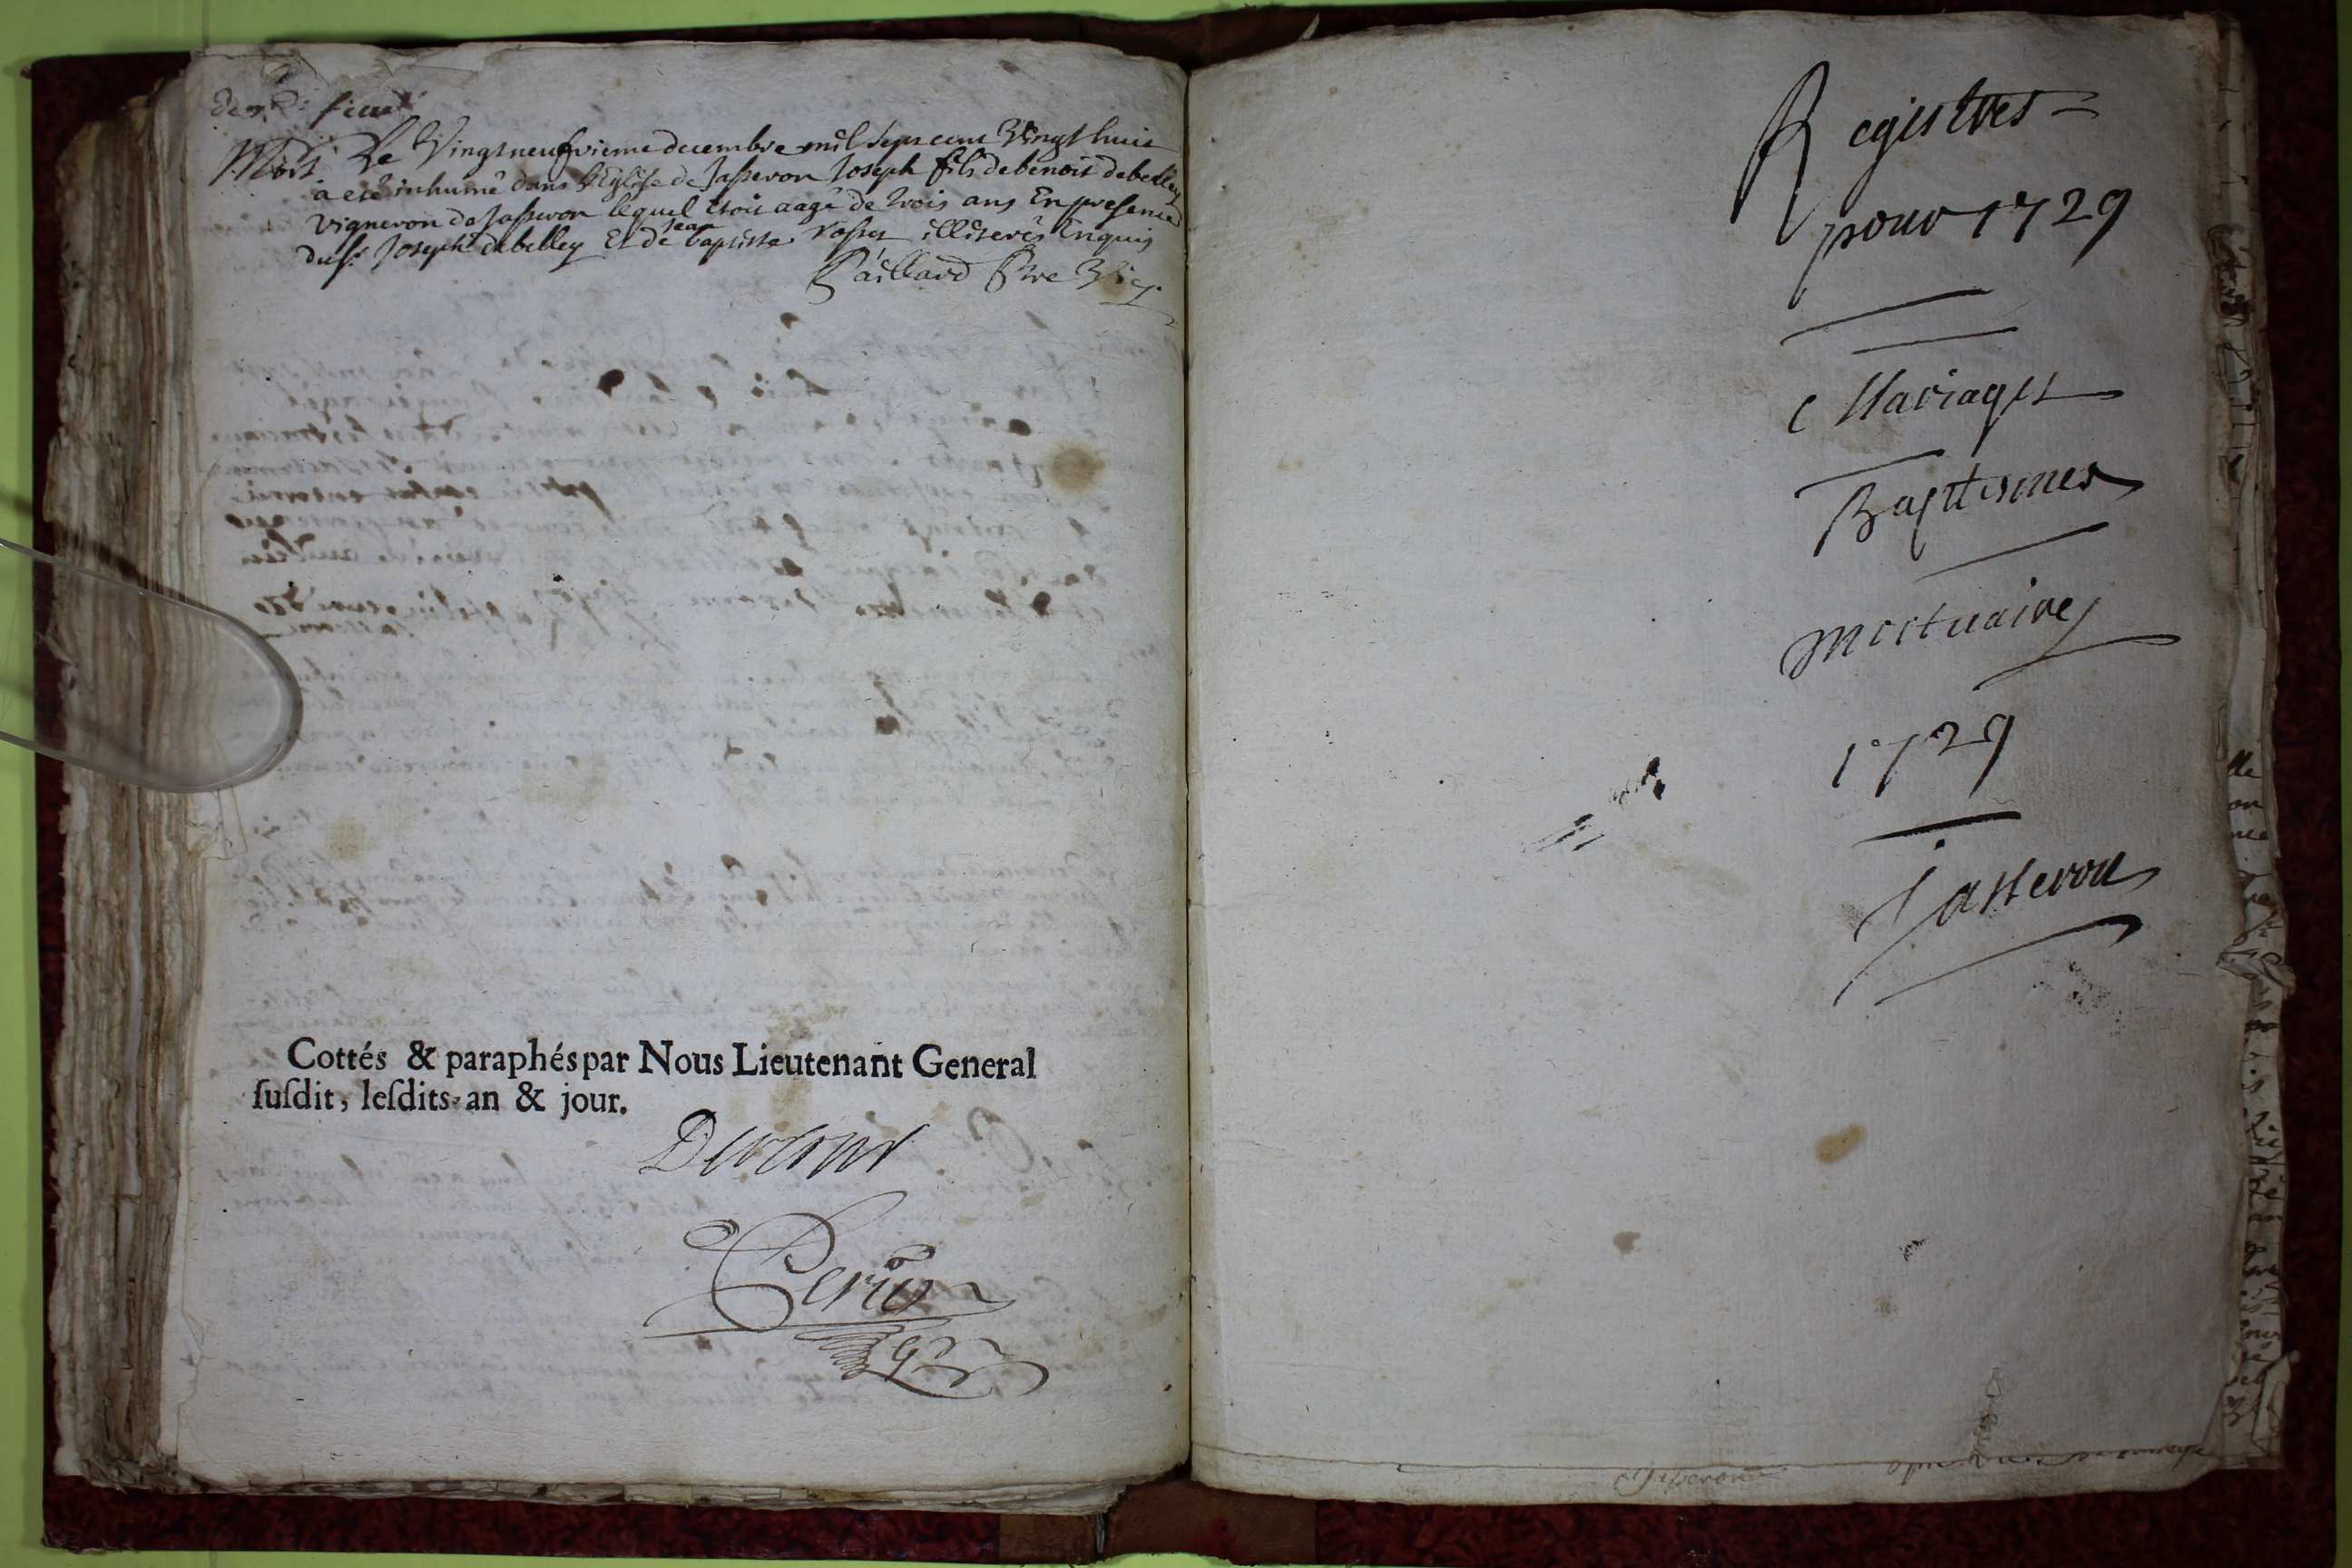 Mort. Le Vingtneufvieme decembre mil sept cent Vingt huit
à eté inhumé dans l'Eglise de Jasseron Joseph fils de benoit debelley
vigneron de Jasseron lequel etoit aagé de trois ans En presence
dud.t Joseph debelley Et de jean baptiste illiterés Enquis
Paillard ptre Vic.
Cottés & paraphés par Nous Lieutenant General
ſuſdit, leſdits an & jour.
Registres
pour 1729
Mariages
Baptesmes
Mortuaires
1729
Jasseron
Jasseron